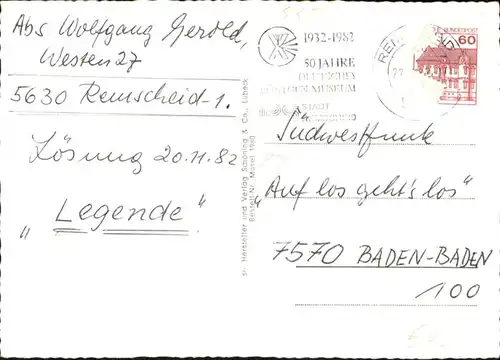 Abs Wolfgang Gerold,
Westen 27
5630 Remscheid-1.
Lösung 20.11.82
„Legende“
Hersteller und Verlag Schöning & Co., Lübeck
1932-1982
50 JAHRE
DEUTSCHES
RÖNTGEN-MUSEUM
STADT
REMSCHEID
BUNDESPOST
60
Südwestfunk
„Auf los geht's los“
7570 BADEN-BADEN
100